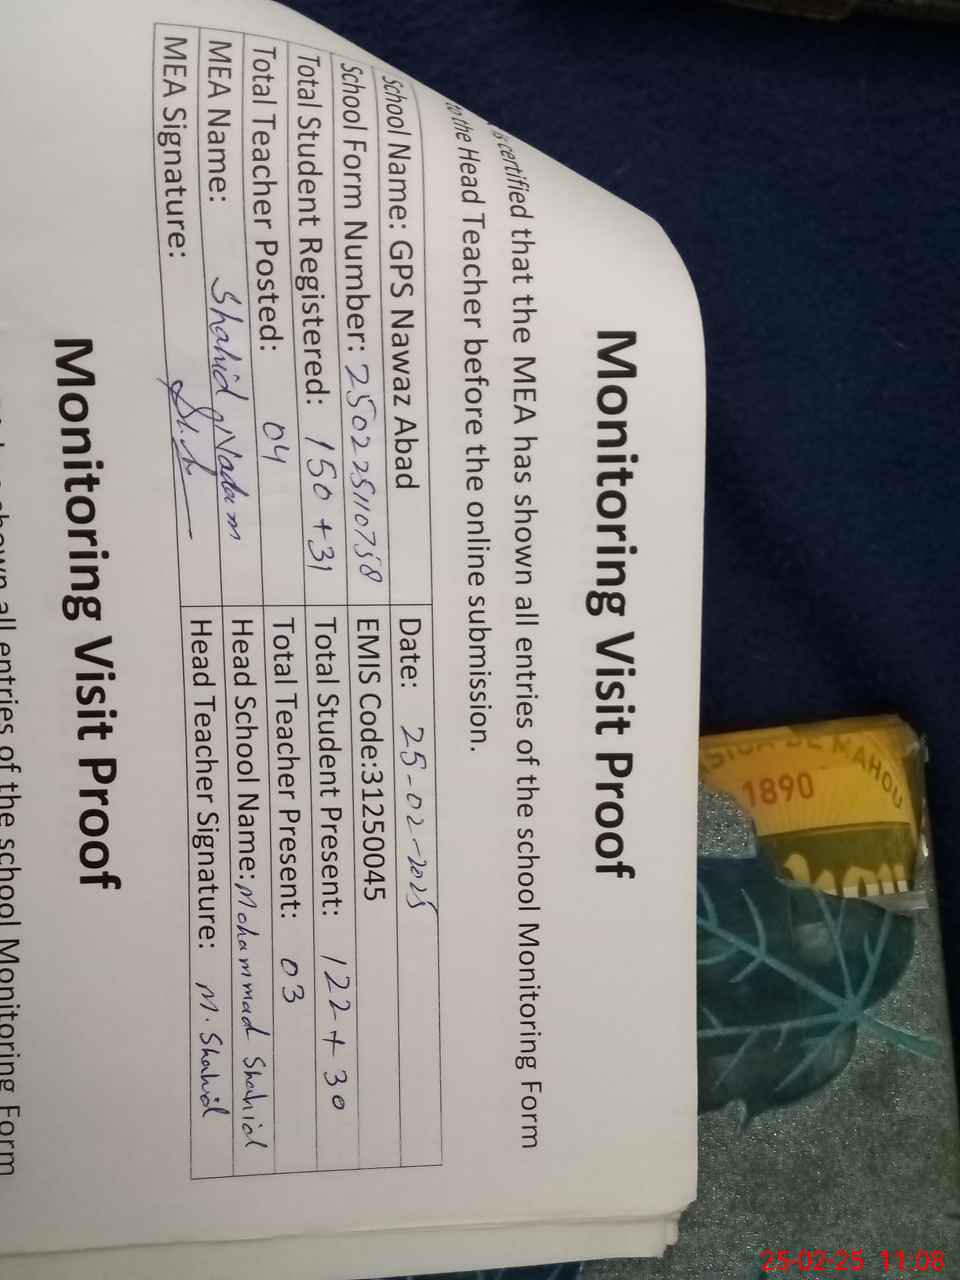 Monitoring Visit Proof
is certified that the MEA has shown all entries of the school Monitoring Form
to the Head Teacher before the online submission.
School Name: GPS Nawaz Abad Date: 25-02-2025
School Form Number: 250225110758 EMIS Code:31250045
Total Student Registered: 150 + 31 Total Student Present: 122 + 30
Total Teacher Posted: 04 Total Teacher Present: 03
MEA Name: Shahid Nadam Head School Name: Mohammad Shahid
MEA Signature: Head Teacher Signature: M. Shahid
Monitoring Visit Proof
shown all entries of the school Monitoring Form
DE MAHOU
1890
25-02-25 11:08